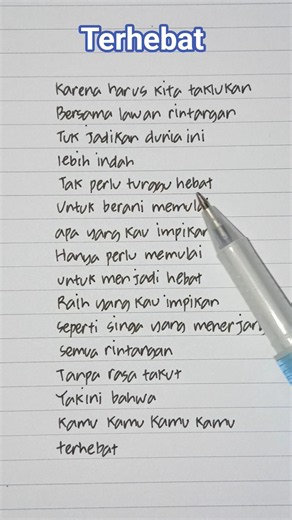 Terhebat
Karena harus kita taklukan
Bersama lawan rintangan
Tuk jadikan dunia ini
lebih indah
Tak perlu tunggu hebat
Untuk berani memulai
apa yang kau impikan
Hanya perlu memulai
untuk menjadi hebat
Raih yang kau impikan
seperti singa yang menerjang
semua rintangan
Tanpa rasa takut
Yakini bahwa
Kamu Kamu Kamu Kamu
terhebat